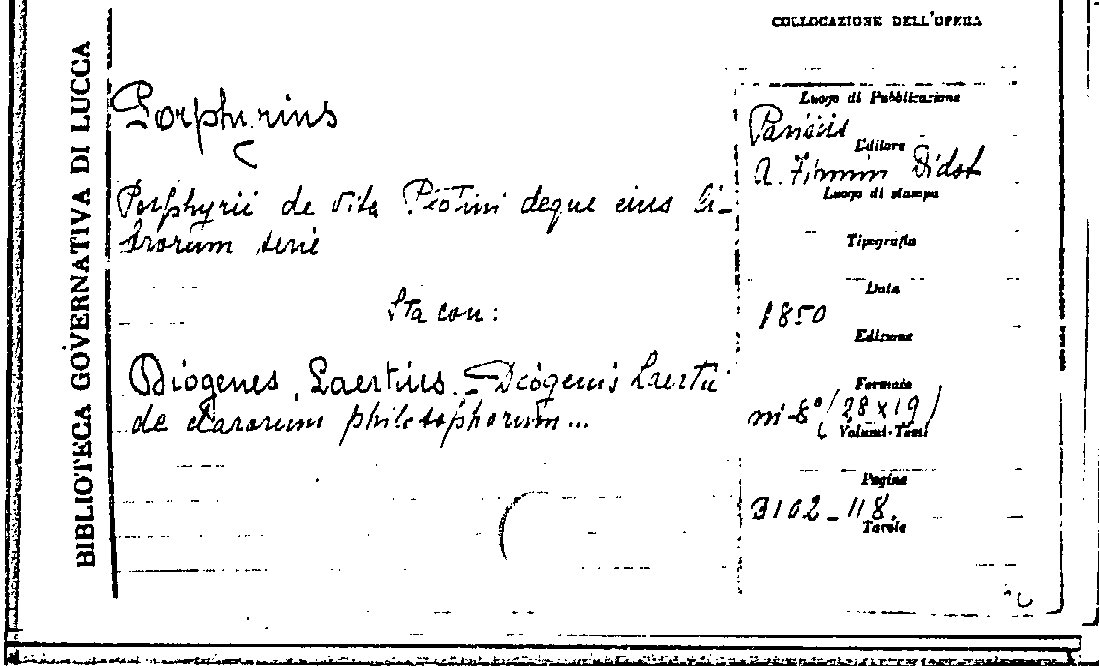 COLLOCAZIONE DELL'OPERA
BIBLIOTECA GOVERNATIVA DI LUCCA
Porphyrius
Porphyrii de vita Plotini deque eius li-
brorum serie
Sta con:
Diogenes Laertius. - Diogenis Laertii
de clararum philosophorum...
Luogo di Pubblicazione
Parisiis
Editore
A. Firmin Didot
Luogo di stampa
Tipografia
Data
1850
Edizione
Formato
in-8° (28x19)
Volumi-Tomi
Pagine
102-118.
Tavole